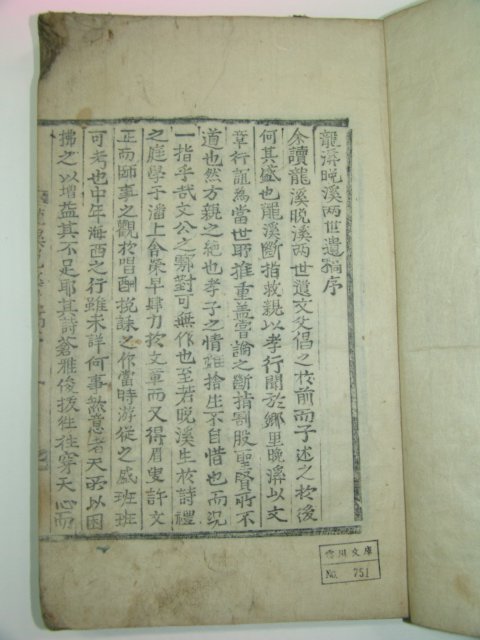 龍溪晩溪两世遺稿序
余讀龍溪晩溪两世遺文父倡之於前而子述之於後
何其盛也龍溪斷指救親以孝行聞於鄕里晩溪以文
章行誼為當世耶推重盖嘗論之斷指割股聖賢所不
道也然方親之絶也孝子之情雖捨生不自惜也而况
一指乎哉文公之鄠對可無作也至若晩溪生於詩禮
之庭學于潘上舍榮早肆力於文章而又得眉叟許文
正而師事之觀於唱酬挽誄之作當時游從之盛班班
可考也中年海西之行雖未詳何事然意者天所以因
拂之以增益其不足耶其詩蒼雅俊拔往往穿天心而
雲川文庫
No. 751